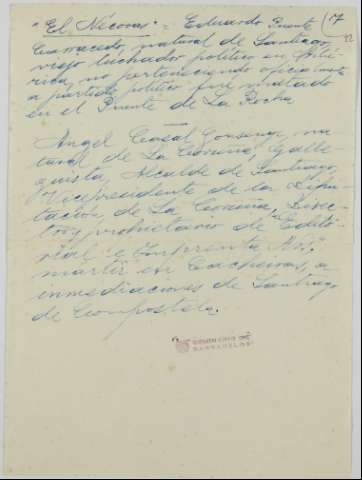 "El Nécoras" = Eduardo Puente (17
Carnacedo, natural de Santiago, 22
viejo luchador político en
no perteneciendo oficialmente
a partido político fué matado
en el Puente de La Rocha
Angel Casal Gonsenga, na-
tural de La Coruña, Galle-
guista, Alcalde de Santiago,
Vicepresidente de la Dipu-
tación de La Coruña, Direc-
tor y propietario de "Edito-
rial e Imprenta Nós"
martir en Cacheiras, a
inmediaciones de Santiago
de Compostela.